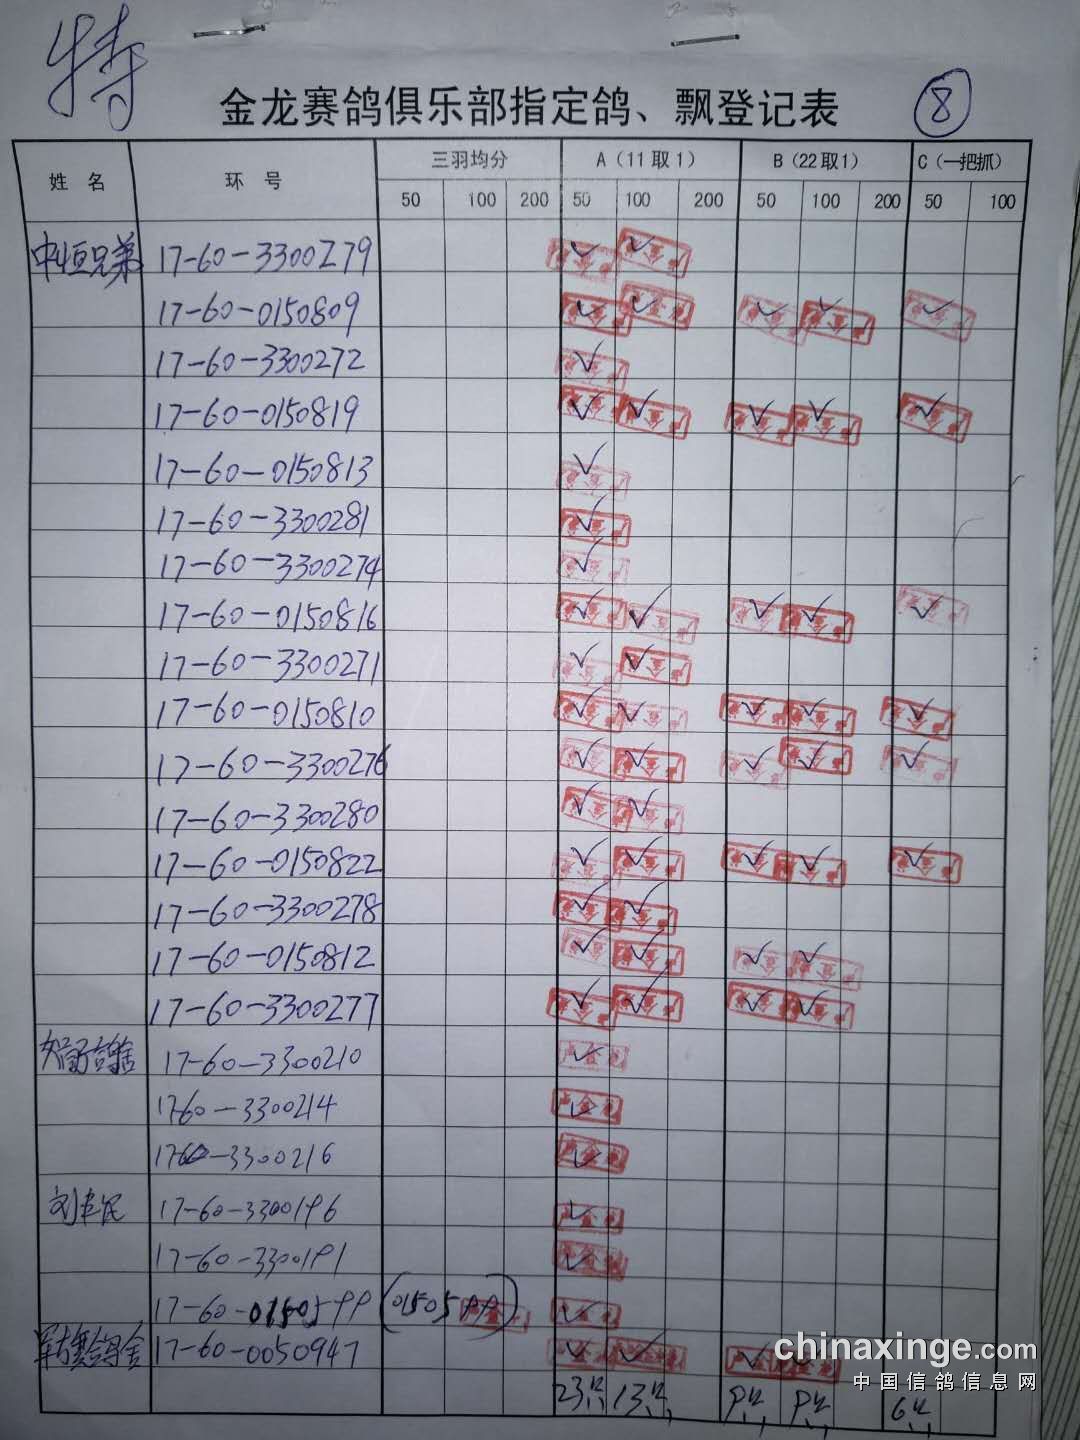 特
金龙赛鸽俱乐部指定鸽、飘登记表 ⑧
姓 名 环 号 三羽均分 A(11取1) B(22取1) C(一把抓)
50 100 200 50 100 200 50 100 200 50 100
中恒兄弟 17-60-3300279 ✓ ✓
17-60-0150809 ✓ ✓ ✓ ✓ ✓
17-60-3300272 ✓
17-60-0150819 ✓ ✓ ✓ ✓ ✓
17-60-0150813 ✓
17-60-3300281 ✓
17-60-3300274 ✓
17-60-0150816 ✓ ✓ ✓ ✓ ✓
17-60-3300271 ✓ ✓
17-60-0150810 ✓ ✓ ✓ ✓ ✓
17-60-3300276 ✓ ✓ ✓ ✓ ✓
17-60-3300280 ✓ ✓
17-60-0150822 ✓ ✓ ✓ ✓ ✓
17-60-3300278 ✓ ✓
17-60-0150812 ✓ ✓ ✓ ✓
17-60-3300277 ✓ ✓ ✓ ✓
鸽舍 17-60-3300210 ✓
1760-3300214 ✓
1760-3300216 ✓
刘丰民 17-60-3300196 ✓
17-60-3300191 ✓
17-60-0150599 (0150599) ✓
17-60-0050947 ✓ ✓ ✓ ✓
23只 13只 9只 9只 6只
chinaxinge.com
中国信鸽信息网